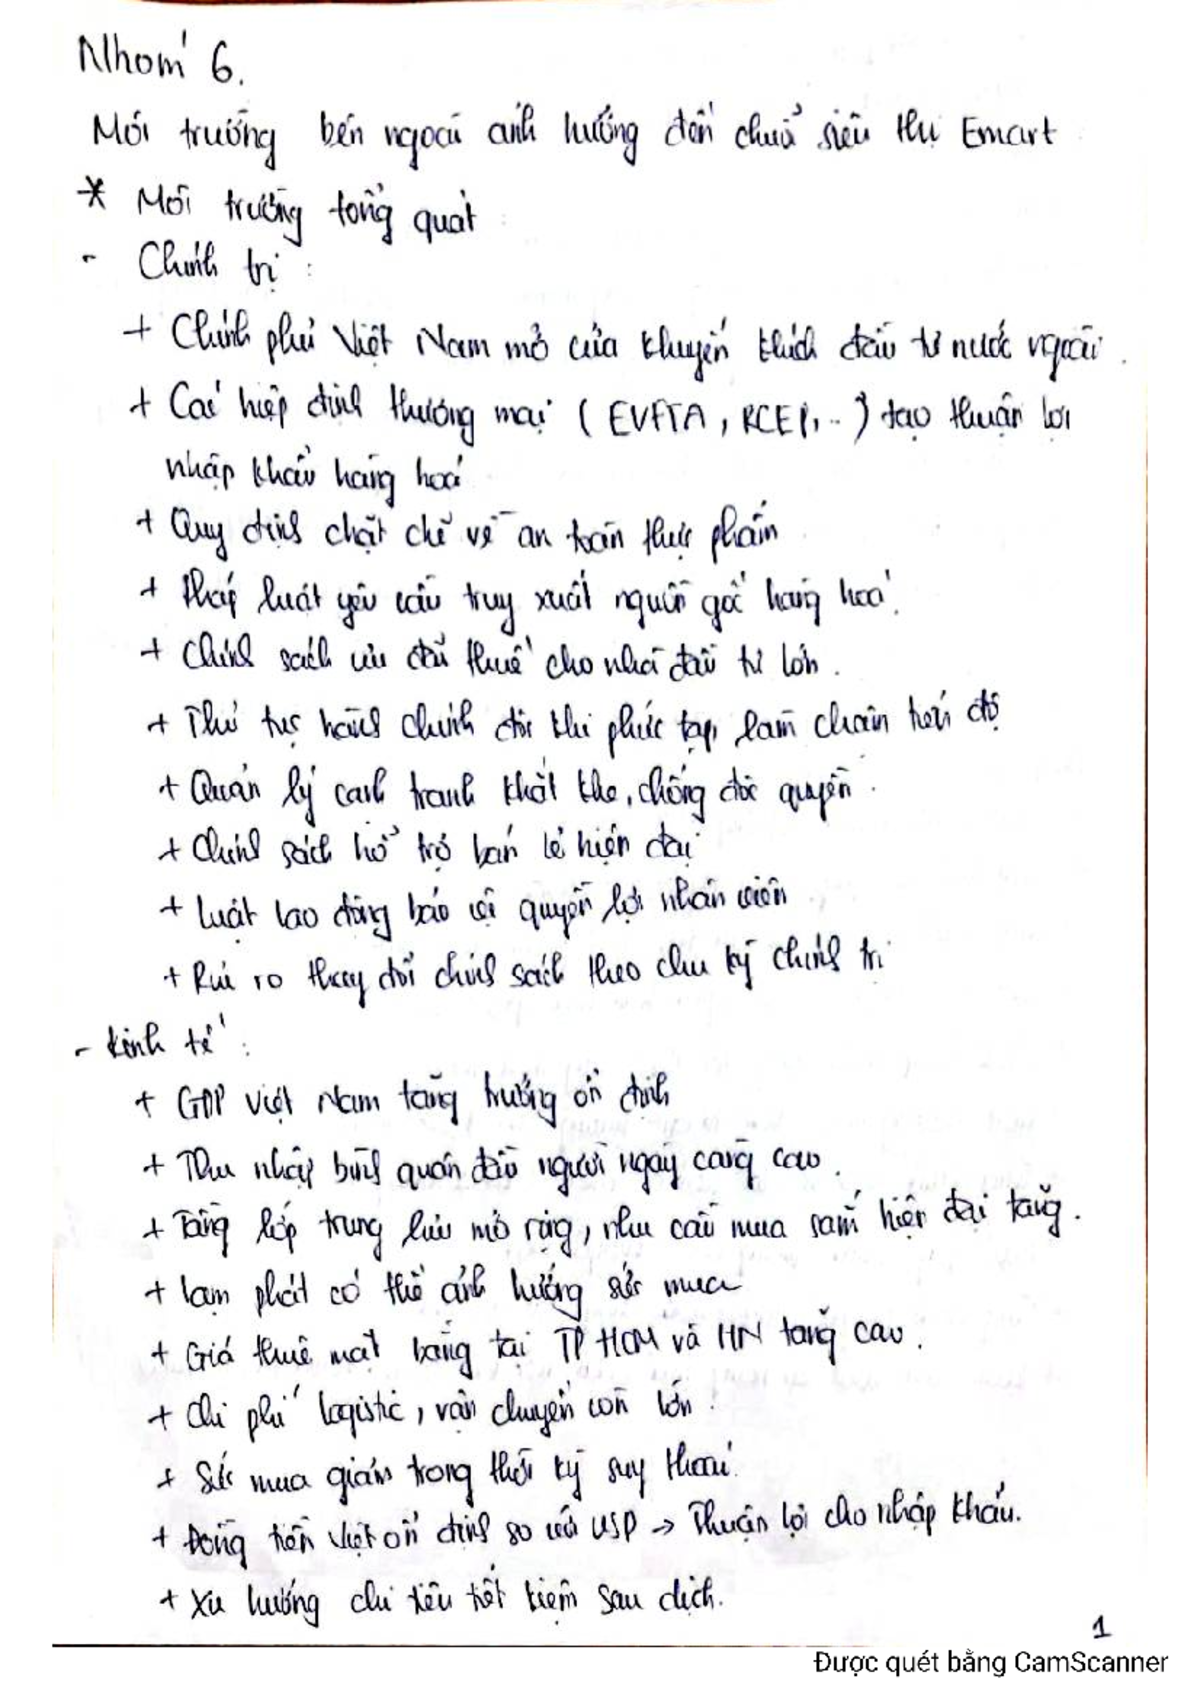 Nhóm 6.
Môi trường bên ngoài ảnh hưởng đến chuỗi siêu thị Emart
* Môi trường tổng quát :
- Chính trị :
+ Chính phủ Việt Nam mở cửa khuyến khích đầu tư nước ngoài.
+ Các hiệp định thương mại (EVFTA, RCEP,..) tạo thuận lợi
nhập khẩu hàng hoá
+ Quy định chặt chẽ về an toàn thực phẩm
+ Pháp luật yêu cầu truy xuất nguồn gốc hàng hoá.
+ Chính sách ưu đãi thuế cho nhà đầu tư lớn.
+ Thủ tục hành chính đôi khi phức tạp, làm chậm tiến độ
+ Quản lý cạnh tranh khắt khe, chống độc quyền.
+ Chính sách hỗ trợ bán lẻ hiện đại
+ Luật lao động bảo vệ quyền lợi nhân viên
+ Rủi ro thay đổi chính sách theo chu kỳ chính trị
- Kinh tế :
+ GDP Việt Nam tăng trưởng ổn định
+ Thu nhập bình quân đầu người ngày càng cao.
+ Tầng lớp trung lưu mở rộng, nhu cầu mua sắm hiện đại tăng.
+ Lạm phát có thể ảnh hưởng sức mua
+ Giá thuê mặt bằng tại TP HCM và HN tăng cao.
+ Chi phí logistic, vận chuyển còn lớn.
+ Sức mua giảm trong thời kỳ suy thoái.
+ Đồng tiền Việt ổn định so với USD → Thuận lợi cho nhập khẩu.
+ Xu hướng chi tiêu tiết kiệm sau dịch.
1
Được quét bằng CamScanner